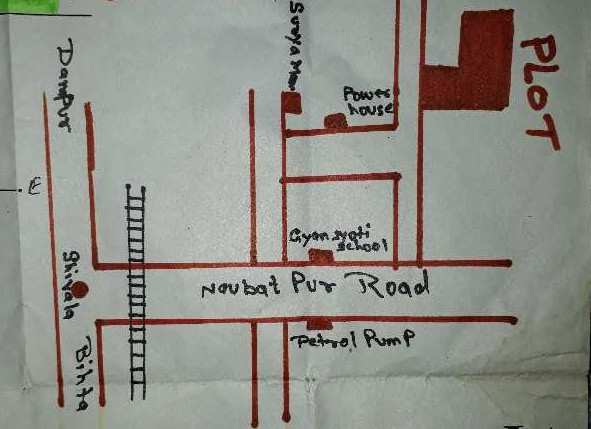 PLOT
Power
house
Gyan Jyoti
School
Noubat Pur Road
Petrol Pump
Danpur
Shivala
Bihta
E